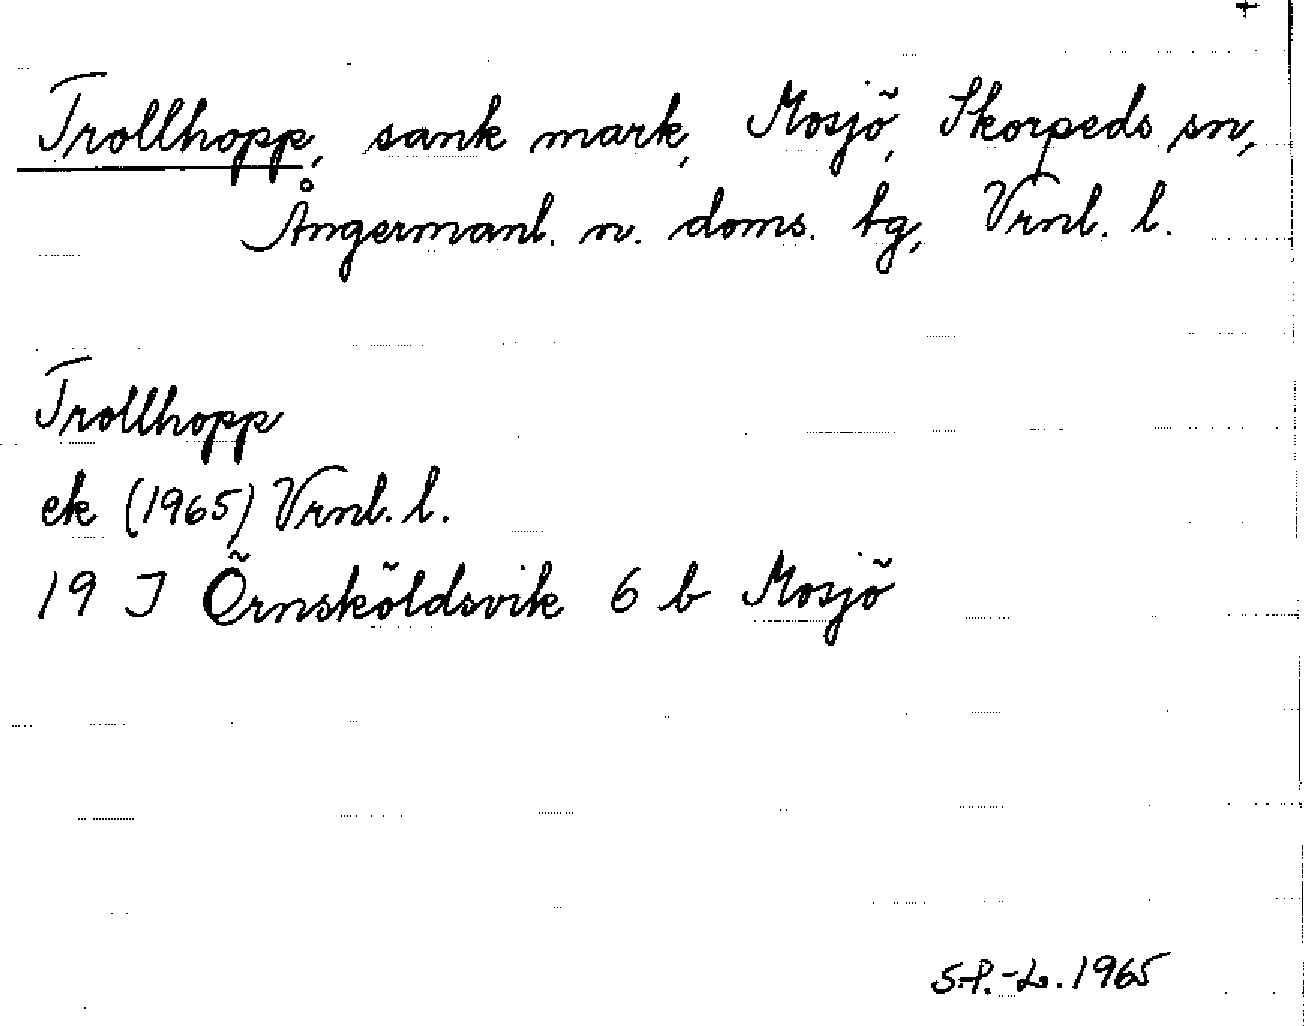 Trollhopp, sank mark, Mosjö, Skorpeds sn,
Ångermanl. n. doms. tg, Vrnl. l.
Trollhopp
ek (1965) Vrnl. l.
19 J Örnsköldsvik 6 b Mosjö
S.P.-L. 1965